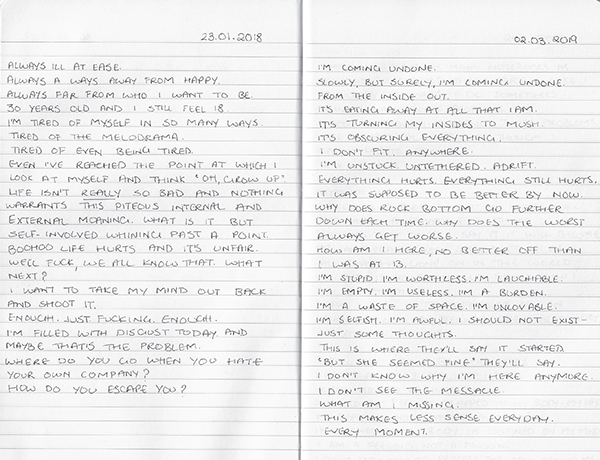 23.01.2018
ALWAYS ILL AT EASE.
ALWAYS A WAYS AWAY FROM HAPPY.
ALWAYS FAR FROM WHO I WANT TO BE.
30 YEARS OLD AND I STILL FEEL 18.
I'M TIRED OF MYSELF IN SO MANY WAYS.
TIRED OF THE MELODRAMA.
TIRED OF EVEN BEING TIRED.
EVEN I'VE REACHED THE POINT AT WHICH I
LOOK AT MYSELF AND THINK 'OH, GROW UP'.
LIFE ISN'T REALLY SO BAD AND NOTHING
WARRANTS THIS PITEOUS INTERNAL AND
EXTERNAL MOANING. WHAT IS IT BUT
SELF-INVOLVED WHINING PAST A POINT.
BOOHOO LIFE HURTS AND IT'S UNFAIR.
WELL FUCK, WE ALL KNOW THAT. WHAT
NEXT?
I WANT TO TAKE MY MIND OUT BACK
AND SHOOT IT.
ENOUGH. JUST FUCKING. ENOUGH.
I'M FILLED WITH DISGUST TODAY AND
MAYBE THAT'S THE PROBLEM.
WHERE DO YOU GO WHEN YOU HATE
YOUR OWN COMPANY?
HOW DO YOU ESCAPE YOU?
02.03.2019
I'M COMING UNDONE.
SLOWLY, BUT SURELY, I'M COMING UNDONE.
FROM THE INSIDE OUT.
IT'S EATING AWAY AT ALL THAT I AM.
IT'S TURNING MY INSIDES TO MUSH.
IT'S OBSCURING EVERYTHING.
I DON'T FIT. ANYWHERE.
I'M UNSTUCK. UNTETHERED. ADRIFT.
EVERYTHING HURTS. EVERYTHING STILL HURTS.
IT WAS SUPPOSED TO BE BETTER BY NOW.
WHY DOES ROCK BOTTOM GO FURTHER
DOWN EACH TIME. WHY DOES THE WORST
ALWAYS GET WORSE.
HOW AM I HERE, NO BETTER OFF THAN
I WAS AT 13.
I'M STUPID. I'M WORTHLESS. I'M LAUGHABLE.
I'M EMPTY. I'M USELESS. I'M A BURDEN.
I'M A WASTE OF SPACE. I'M UNLOVABLE.
I'M SELFISH. I'M AWFUL. I SHOULD NOT EXIST–
JUST SOME THOUGHTS.
THIS IS WHERE THEY'LL SAY IT STARTED
"BUT SHE SEEMED FINE" THEY'LL SAY.
I DON'T KNOW WHY I'M HERE ANYMORE.
I DON'T SEE THE MESSAGE
WHAT AM I MISSING.
THIS MAKES LESS SENSE EVERYDAY.
EVERY MOMENT.